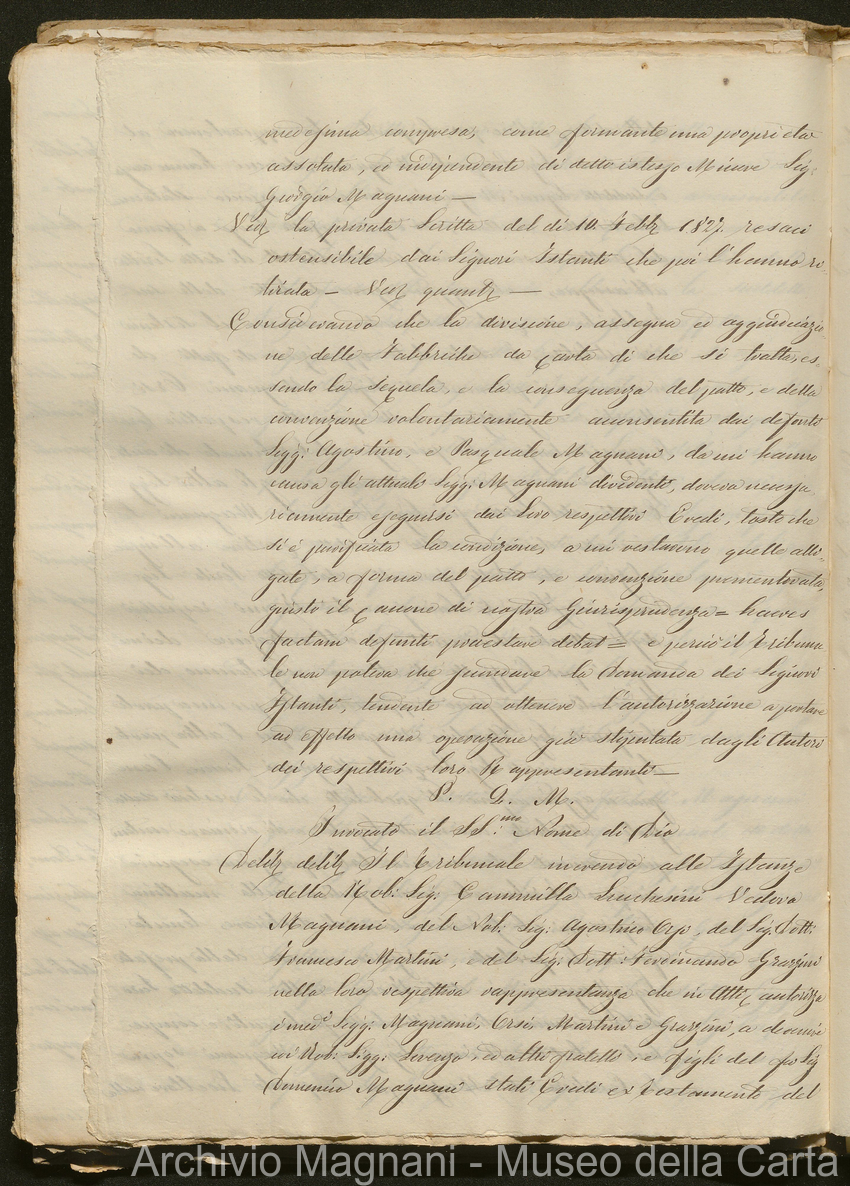 medesima compresa, come formante una proprietà
assoluta, ed indipendente di detto istesso Minore Sig:
Giorgio Magnani —
Ved la privata Scritta del dì 10. Febb 1827. resaci
ostensibile dai Signori Istanti che poi l'hanno ri-
tirata — Ved quant —
Considerando che la divisione, assegna ed aggiudicazio-
ne delle Fabbriche da Carta di che si tratta, es-
sendo la sequela, e la conseguenza del patto, e della
convenzione volontariamente acconsentita dai defonti
Sigg: Agostino, e Pasquale Magnani, da cui hanno
causa gli attuali Sigg: Magnani dividenti, doveva necessa
riamente eseguirsi dai Loro respettivi Eredi, tosto che
si è purificata la condizione, a cui restavano quelle alli-
gate, a forma del patto, e convenzione prementovata,
giusto il Canone di nostra Giurisprudenza = haeres
factam defunti praestare debat = e perciò il Tribuna
le non poteva che secondare la Domanda dei Signori
Istanti, tendente ad ottenere l'autorizzazione a portare
ad effetto una operazione già stipulata dagli Autori
dei respettivi loro Rappresentanti —
P. Q. M.
Invocato il SS.mo Nome di Dio
Delib delib Il Tribunale inerendo alle Istanze
della Nob: Sig: Cammilla Luchesini Vedova
Magnani, del Nob: Sig: Agostino Orsi, del Sig: Dott:
Francesco Martini, e del Sig: Dott: Ferdinando Grazzini
nella loro respettiva rappresentanza che in Atti, autorizza
i med.i Sigg: Magnani, Orsi, Martini e Grazzini, a devenire
coi Nob: Sigg: Lorenzo, ed altri fratelli, e figli del fu Sig
Domenico Magnani stati Eredi ex Testamento del
Archivio Magnani - Museo della Carta